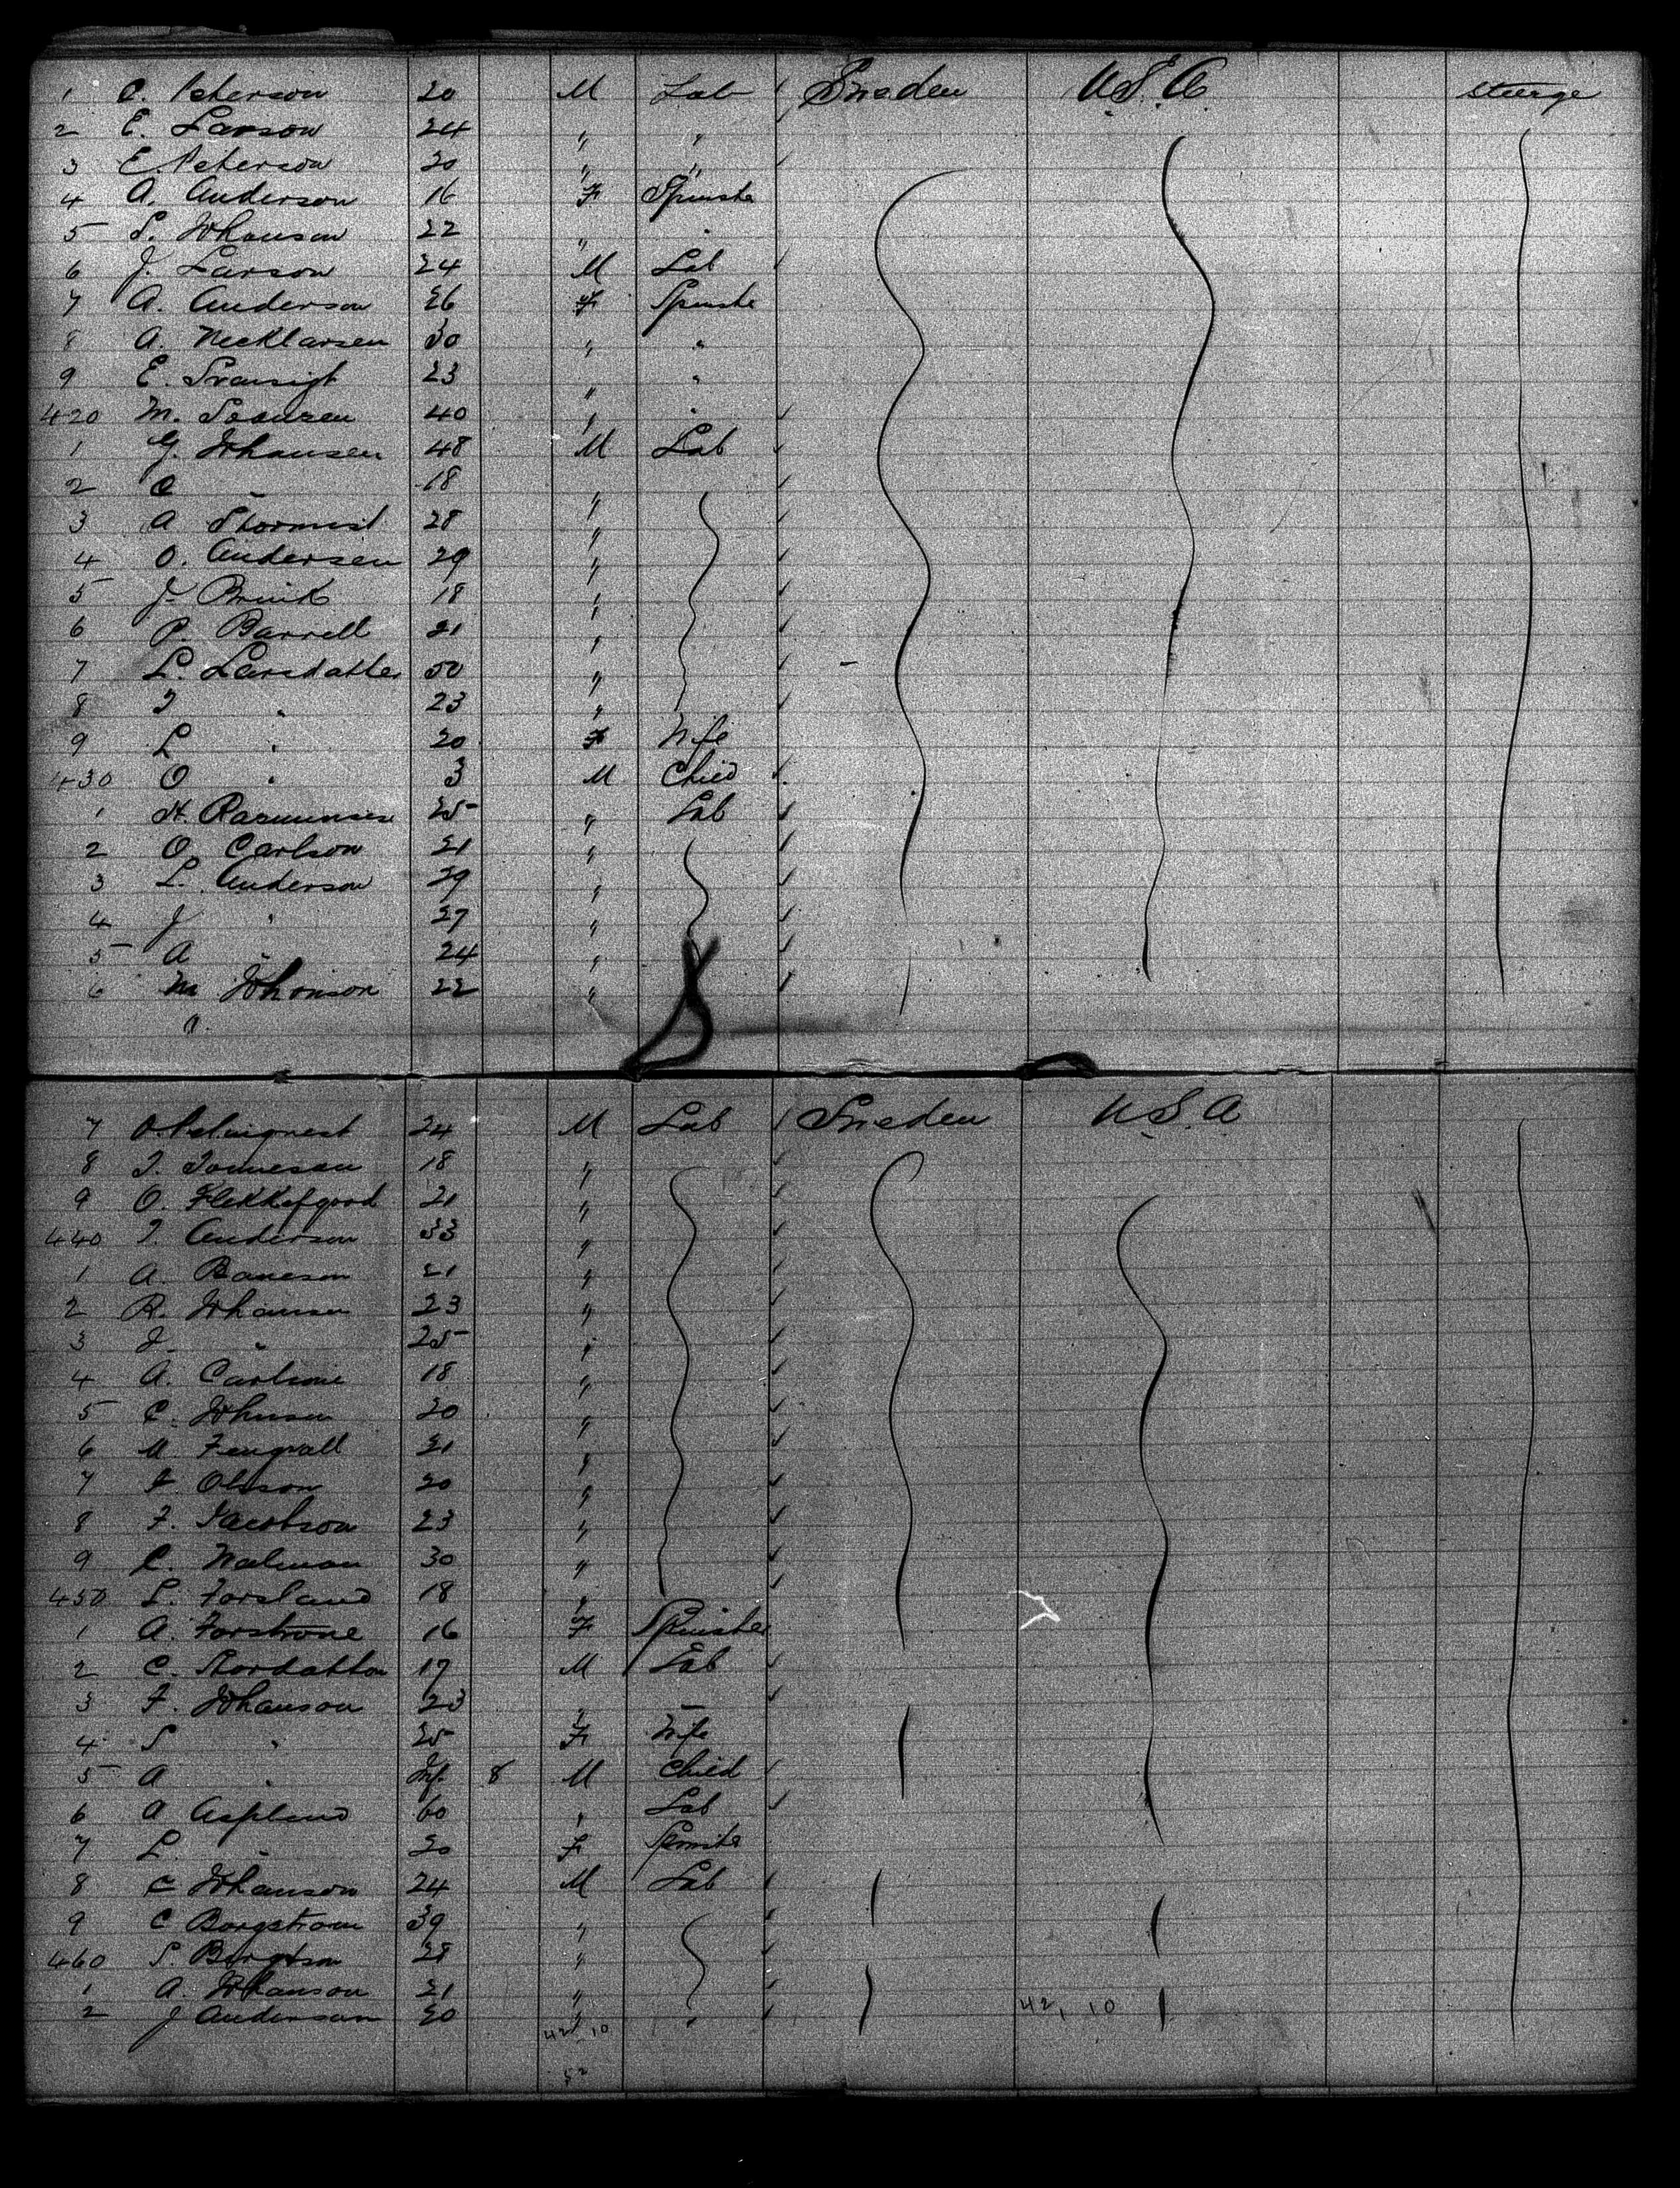 1 C. Peterson 20 M Lab Sweden U.S.A. steerge
2 E. Larson 24 " "
3 E. Peterson 20 " "
4 A. Anderson 16 F Spinste
5 S. Johanson 22 " "
6 J. Larson 24 M Lab
7 A. Anderson 26 F Spinste
8 A. Necklarsen 30 " "
9 E. 23 " "
420 M. 40 " "
1 G. Johansen 48 M Lab
2 C " 18 "
3 A 28 "
4 O. Andersen 29 "
5 J. Brink 18 "
6 P. Barrell 21 "
7 L. Larsdatter 50 "
8 I " 23 "
9 L " 20 F Wife
430 O " 3 M Child
1 H. Rasmunsen 25 " Lab
2 O. Carlson 21 "
3 L. Anderson 29 "
4 J " 27 "
5 A " 24 "
6 M Johonson 22 "
7 24 M Lab Sweden U.S.A
8 18 "
9 O. Flekkefgord 21 "
440 I. Anderson 33 "
1 A. Baneson 21 "
2 R. Johansen 23 "
3 J. " 25 "
4 A. 18 "
5 C. Johnsen 20 "
6 21 "
7 Olsson 20 "
8 F. Jacobson 23 "
9 C. 30 "
450 L. Forsland 18 "
1 A. Forstrone 16 F Spinste
2 C. 17 M Lab
3 F. Johanson 23 " "
4 S " 25 F Wife
5 A " Inf. 8 M Child
6 A Aspland 60 " Lab
7 L. " 20 F Spinste
8 C Johanson 24 M Lab
9 C Borgstrom 39 "
460 S. 28 "
1 A. Johanson 21 "
2 J Anderson 20 " "
42, 10 42, 10
52